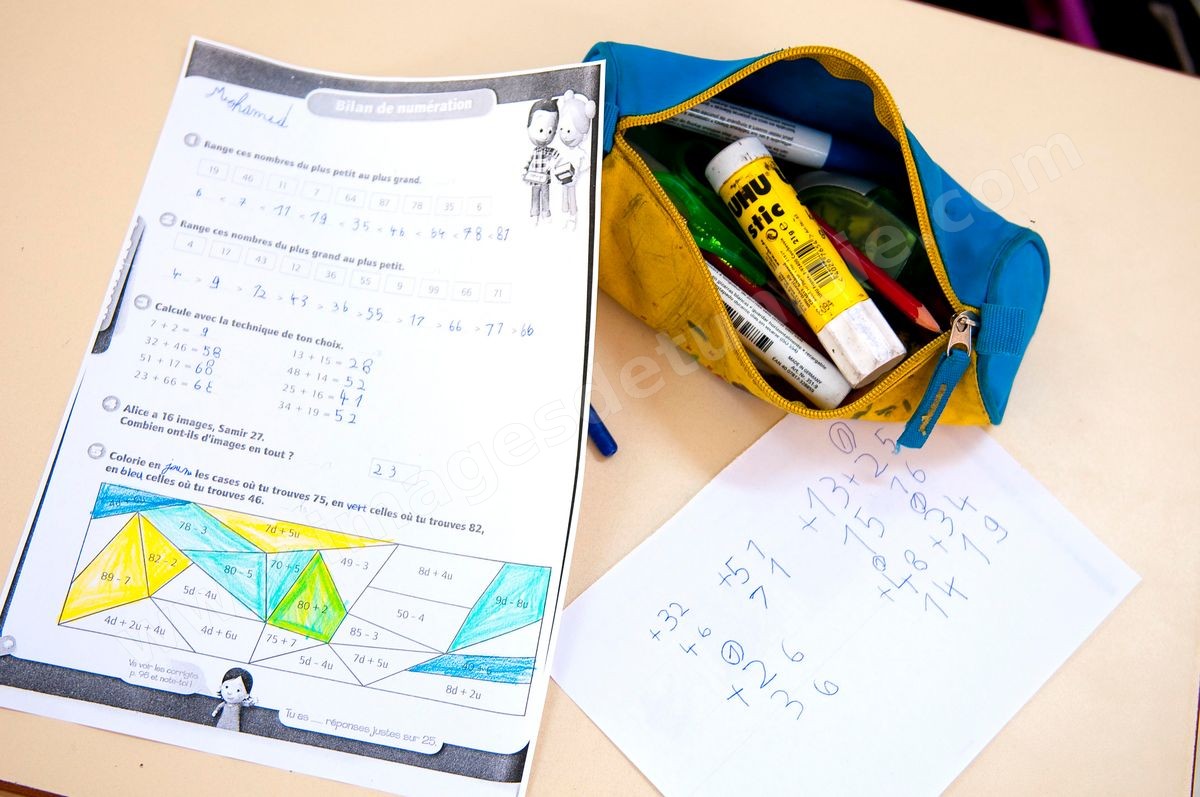 Mohamed
Bilan de numération
1 Range ces nombres du plus petit au plus grand.
19 46 11 7 64 87 78 35 6
6 < 7 < 11 < 19 < 35 < 46 < 64 < 78 < 87
2 Range ces nombres du plus grand au plus petit.
4 17 43 12 36 55 9 99 66 71
4 > 9 > 12 > 43 > 36 > 55 > 17 > 66 > 77 > 66
3 Calcule avec la technique de ton choix.
7 + 2 = 9
32 + 46 = 58
51 + 17 = 68
23 + 66 = 68
13 + 15 = 28
48 + 14 = 52
25 + 16 = 41
34 + 19 = 52
4 Alice a 16 images, Samir 27.
Combien ont-ils d'images en tout ?
23
5 Colorie en jaune les cases où tu trouves 75, en vert celles où tu trouves 82,
en bleu celles où tu trouves 46.
78 - 3
7d + 5u
82 - 2
89 - 7
80 - 5
70 + 5
49 - 3
8d + 4u
5d - 4u
80 + 2
50 - 4
9d - 8u
4d + 2u + 4u
4d + 6u
75 + 7
85 - 3
5d - 4u
7d + 5u
40 + 6
8d + 2u
Va voir les corrigés
p. 98 et note-toi !
Tu as ___ réponses justes sur 25.
UHU
stic
21g
MADE IN GERMANY
1
25
+ 16
13
+ 15
1
34
+ 19
48
+ 14
51
+ 71
32
+ 46
1
26
+ 36